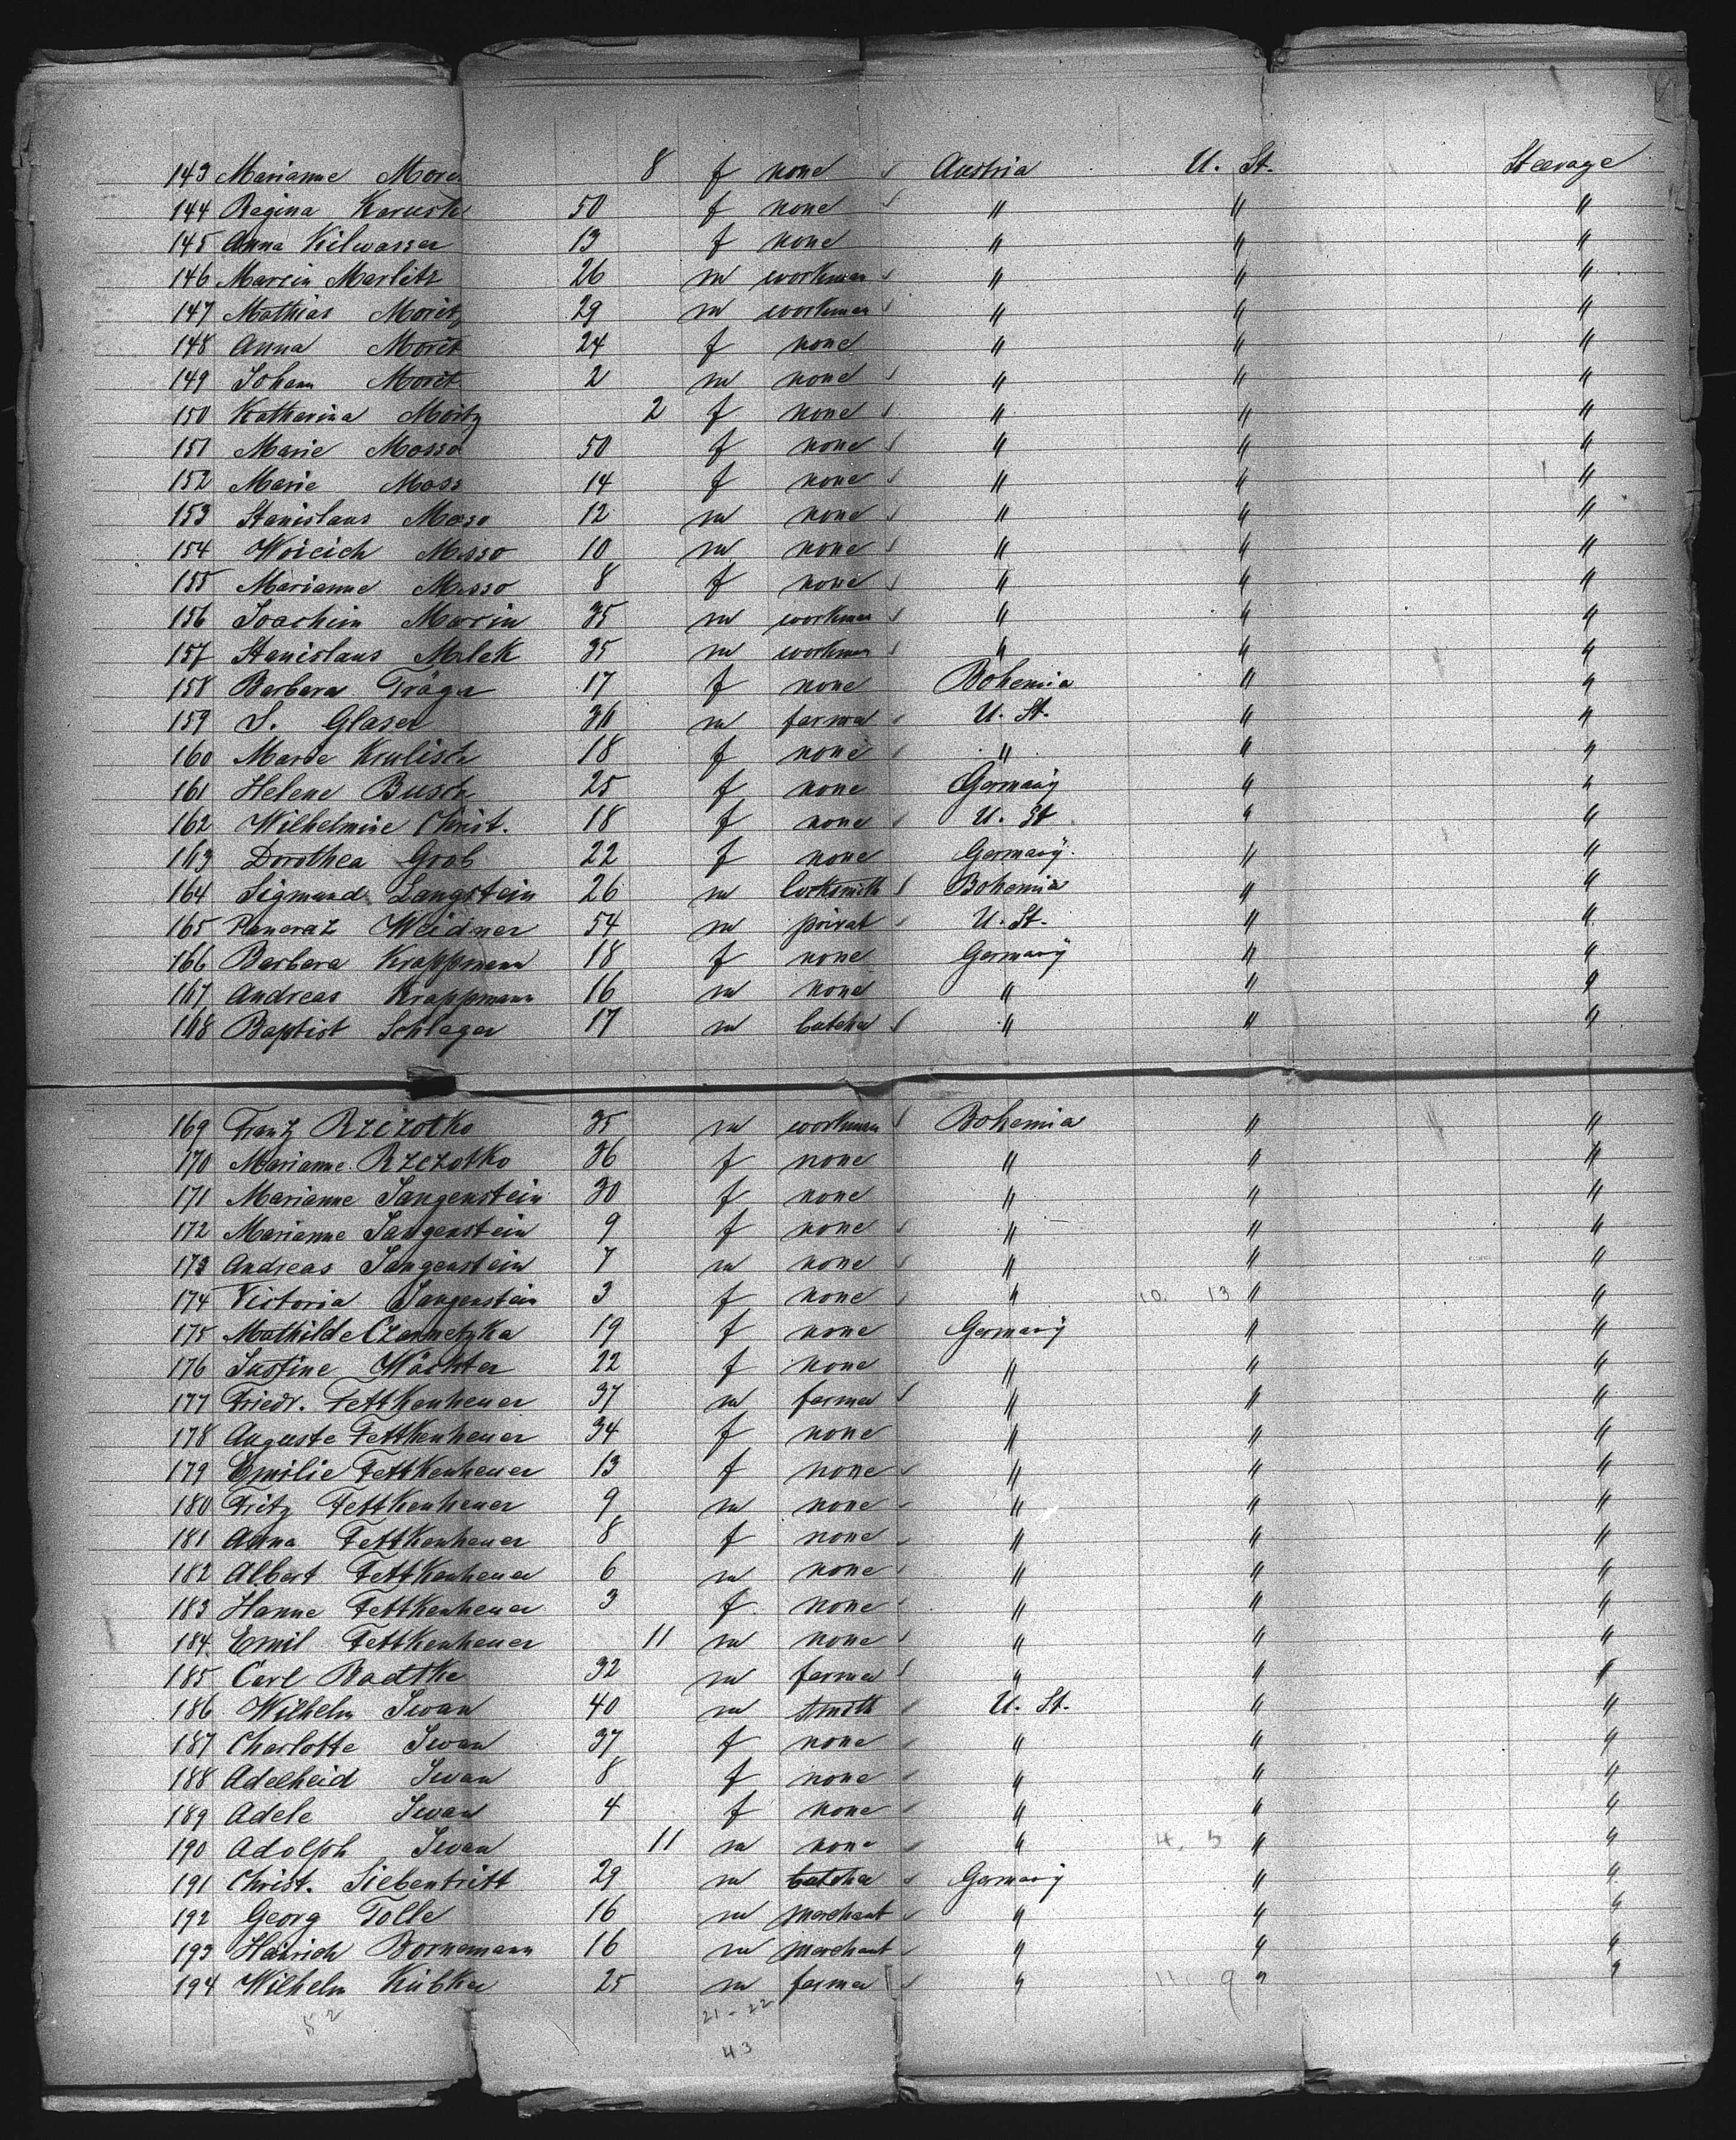 143 Marianne More 8 f none Austria U. St. Steerage
144 Regina Karusch 50 f none " " "
145 Anna Kilwasser 13 f none " " "
146 Marcin Marlitz 26 m workman " " "
147 Mathias Moritz 29 m workman " " "
148 Anna Morit 24 f none " " "
149 Johann Morit 2 m none " " "
150 Katharina Moritz 2 f none " " "
151 Marie Mosso 50 f none " " "
152 Marie Moss 14 f none " " "
153 Stanislaus Mosso 12 m none " " "
154 Woicich Mosso 10 m none " " "
155 Marianne Mosso 8 f none " " "
156 Joachim Marcin 35 m workman " " "
157 Stanislaus Malek 35 m workman " " "
158 Barbara Träger 17 f none Bohemia " "
159 S. Glaser m farmer U. St. " "
160 Marie Krulisch 18 f none " " "
161 Helene Busch 25 f none Germany " "
162 Wilhelmine Christ. 18 f none U. St. " "
163 Dorothea Grob 22 f none Germany " "
164 Sigmund Langstein 26 m locksmith Bohemia " "
165 Pancraz Weidner 54 m privat U. St. " "
166 Barbara Krappmann 18 f none Germany " "
167 Andreas Krappmann 16 m none " " "
168 Baptist Schlager 17 m butcher " " "
169 Franz Rzezotko 35 m workman Bohemia " "
170 Marianne Rzezotko 36 f none " " "
171 Marianne Langenstein 30 f none " " "
172 Marianne Langenstein 9 f none " " "
173 Andreas Langenstein 7 m none " " "
174 Victoria Langenstein 3 f none " 10. 13 " "
175 Mathilde Czarnetzka 19 f none Germany " "
176 Justine Wächter 22 f none " " "
177 Friedr. Fettkenheuer 37 m farmer " " "
178 Auguste Fettkenheuer 34 f none " " "
179 Emilie Fettkenheuer 13 f none " " "
180 Fritz Fettkenheuer 9 m none " " "
181 Anna Fettkenheuer 8 f none " " "
182 Albert Fettkenheuer 6 m none " " "
183 Hanne Fettkenheuer 3 f none " " "
184 Emil Fettkenheuer 11 m none " " "
185 Carl Badtke 32 m farmer " " "
186 Wilhelm Iwan 40 m smith U. St. " "
187 Charlotte Iwan 37 f none " " "
188 Adelheid Iwan 8 f none " " "
189 Adele Iwan 4 f none " " "
190 Adolph Iwan 11 m none " 4. 5 " "
191 Christ. Siebentritt 29 m butcher Germany " "
192 Georg Tolle 16 m merchant " " "
193 Heinrich Bornemann 16 m merchant " " "
194 Wilhelm Kubka 25 m farmer " 11 9 " "
52 21-22
43